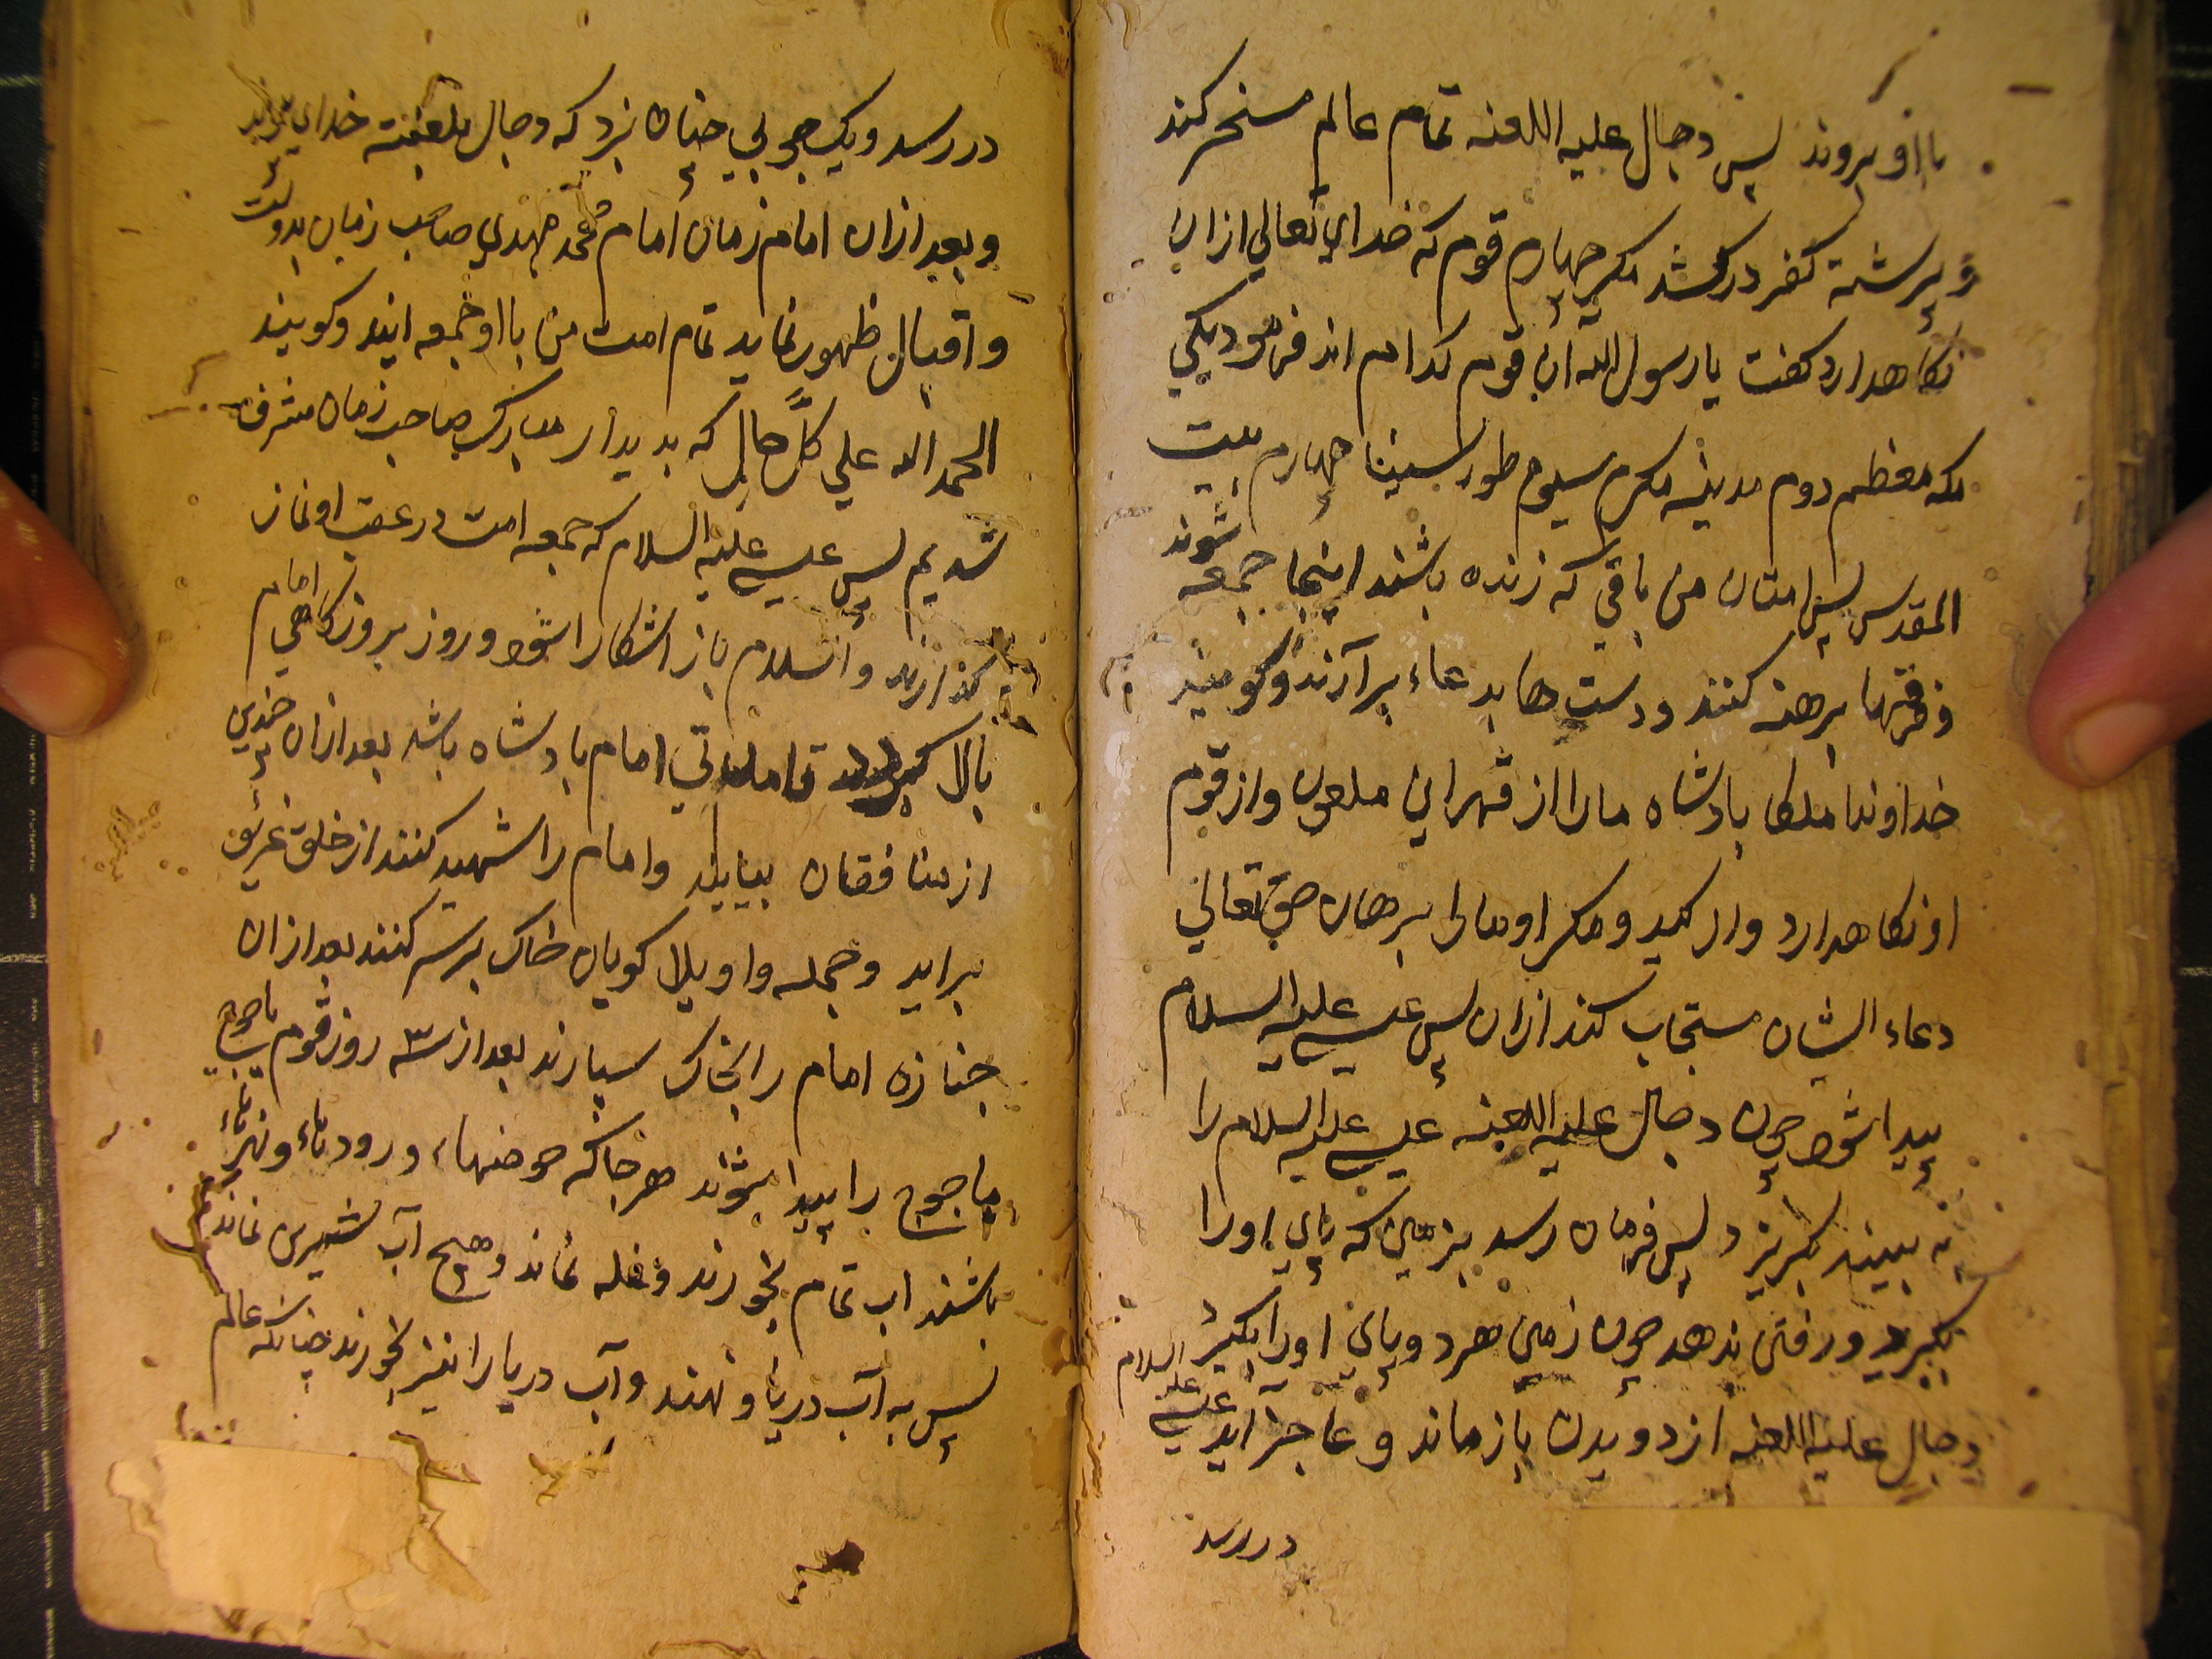 با او بروند پس دجال علیه اللعنه تمام عالم مسخر کند
و برشته کفر در کشد مکر چهارم قوم که خدای تعالی ازان
نکاهدارد کفت یا رسول الله ان قوم کدام اند فرمود یکی
مکه معظم دوم مدینه مکرم سیوم طور سینا چهارم بیت
المقدس پس امتان من باقی که زنده باشند اینجا جمعه شوند
و فرقها برهنه کنند و دست ها بدعاء برآرند و کویند
خداوندا ملکا بادشاه مارا از قهر این ملعون و از قوم
او نکاهدارد و از کید و مکر او مارا برهان حق تعالی
دعاء ایشان مستجاب کند ازان پس عیسی علیه السلام
پیدا شود چون دجال علیه اللعنه عیسی علیه السلام را
به بیند بکریزد پس فرمان رسد بزمین که پای او را
بکیرد و رفتن ندهد چون زمین هرد و پای او را بکیرد
دجال علیه اللعنه از دویدن باز ماند و عاجز آید عیسی علیه السلام
در رسد
در رسد و یک چوبی چنان بزد که دجال بلعنته خدای
و بعد ازان امام زمان امام محمد مهدی صاحب زمان بدولت
و اقبال ظهور نماید تمام امت من با او جمعه ایند و کویند
الحمد الله علی کل حال که بدیدار مبارک صاحب زمان مشرف
شدیم پس عیسی علیه السلام که جمعه امت در عقب او نماز
کذارند و اسلام باز اشکارا شود و روز بروز کاهی امام
بالا کیرد تا مدتی امام بادشاه باشد بعد ازان چندین
از منافقان بیایند و امام را شهید کنند از خلق غریو
براید و جمله واویلا کویان خاک برسر کنند بعد ازان
جنازه امام را بخاک سپارند بعد از سه روز قوم یاجوج
ماجوج را پیدا شوند هرجا که حوضهاء و رودهاء و نهرهاء
باشند اب تمام بخورند و غله نماند و هیچ آب شیرین نماند
پس به آب دریا و نهند و آب دریا را نیز بخورند چنانکه عالم